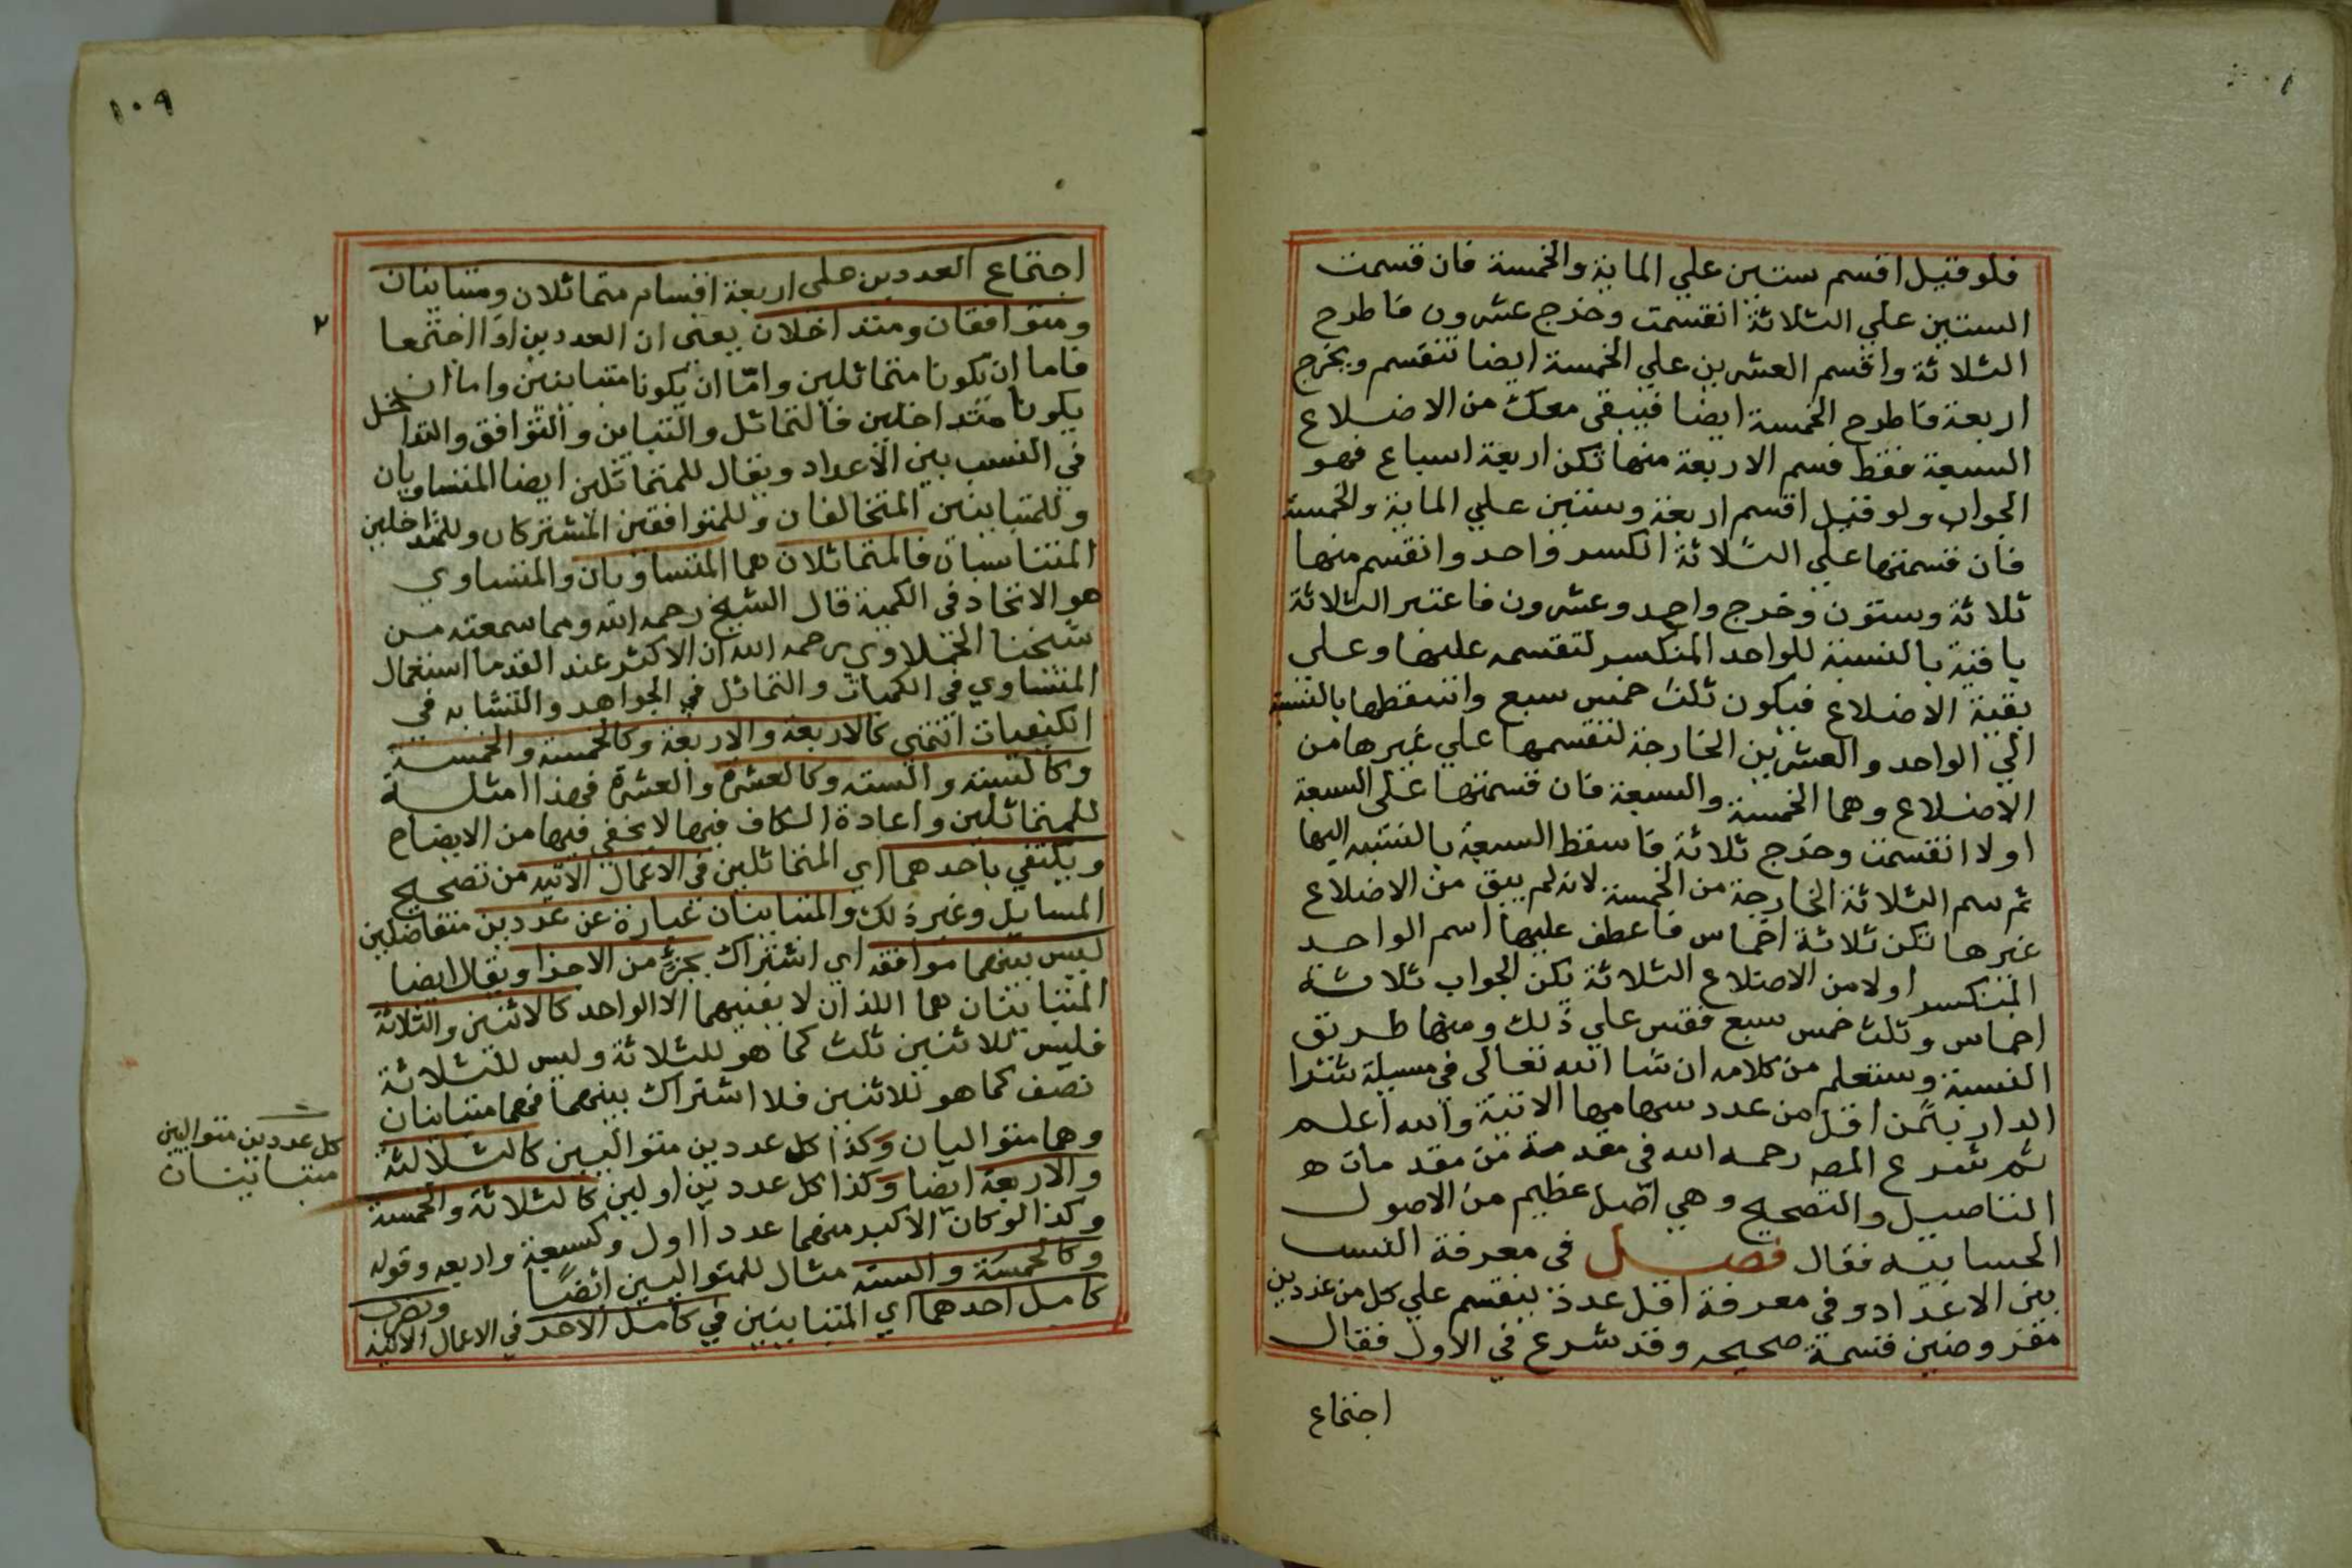 فلو قيل اقسم ستين علي الماية والخمسة فان قسمت
الستين علي الثلاثة انقسمت وخرج عشرون فاطرح
الثلاثة واقسم العشرين علي الخمسة ايضا تنقسم ويخرج
اربعة فاطرح الخمسة ايضا فيبقي معك من الاضلاع
السبعة فقط فسم الاربعة منها تكن اربعة اسباع فهو
الجواب ولو قيل اقسم اربعة وستين علي الماية والخمسة
فان قسمتها علي الثلاثة انكسر واحد وانقسم منها
ثلاثة وستون وخرج واحد وعشرون فاعتبر الثلاثة
باقية بالنسبة للواحد المنكسر لتقسمه عليها وعلي
بقية الاضلاع فيكون ثلث خمس سبع واسقطها بالنسبة
الي الواحد والعشرين الخارجة لتقسمها علي غيرها من
الاضلاع وهما الخمسة والسبعة فان قسمتها علي السبعة
اولا انقسمت وخرج ثلاثة فاسقط السبعة بالنسبه اليها
ثم سم الثلاثة الخارجة من الخمسة لانه لم يبق من الاضلاع
غيرها تكن ثلاثة اخماس فاعطف عليها اسم الواحد
المنكسر اولا من الاضلاع الثلاثة تكن الجواب ثلاثة
اخماس وثلث خمس سبع فقس علي ذلك ومنها طريق
النسبة وستعلم من كلامه ان شا الله تعالى في مسيلة شرا
الدار بثمن اقل من عدد سهامها الاتية والله اعلم
ثم شرع المصه رحمه الله في مقدمة من مقدمات ه
التاصيل والتصحيح وهي اصل عظيم من الاصول
الحسابيه فقال فصل في معرفة النسب
بين الاعداد وفي معرفة اقل عدد ينقسم علي كل من عددين
مفروضين قسمة صحيحه وقد شرع في الاول فقال
اجتماع
١٠٩
اجتماع العددين علي اربعة اقسام متماثلان ومتباينان
ومتوافقان ومتداخلان يعني ان العددين اذا اجتمعا
٢
فاما ان يكونا متماثلين واما ان يكونا متباينين واما ان
يكونا متداخلين فالتماثل والتباين والتوافق والتداخل
في النسب بين الاعداد ويقال للمتماثلين ايضا المتساويان
وللمتباينين المتخالفان وللمتوافقين المشتركان وللمتداخلين
المتناسبان فالمتماثلان هما المتساويان والمتساوي
هو الاتحاد في الكمية قال الشيخ رحمه الله ومما سمعته من
شيخنا الخملاوي رحمه الله ان الاكثر عند القدما استعمال
المتساوي في الكميات والتماثل في الجواهر والتشابه في
الكيفيات انتهي كالاربعة والاربعة وكالخمسة والخمسة
وكالستة والسته وكالعشرة والعشرة فهذا امثلة
للمتماثلين واعادة الكاف فيها لا يخفي فيها من الايضاح
ويكتفي باحدهما اي المتماثلين في الاعمال الاتيه من تصحيح
المسايل وغير ذلك والمتباينان عبارة عن عددين متفاضلين
ليس بينهما موافقه اي اشتراك بجزء من الاجزا ويقال ايضا
المتباينان هما اللذان لا يفنيهما الا الواحد كالاثنين والثلاثة
فليس للاثنين ثلث كما هو للثلاثة وليس للثلاثة
نصف كما هو للاثنين فلا اشتراك بينهما فهما متباينان
وهما متواليان وكذا كل عددين متواليين كالثلاثة
والاربعة ايضا وكذا كل عددين اولين كالثلاثة والخمسة
وكذا لو كان الاكبر منهما عددا اول وكسبعة واربعه وقوله
وكالخمسة والسته مثال للمتواليين ايضًا ونضرب
كامل احدهما اي المتباينين في كامل الاخر في الاعمال الاتيه
كل عددين متواليين
متباينان